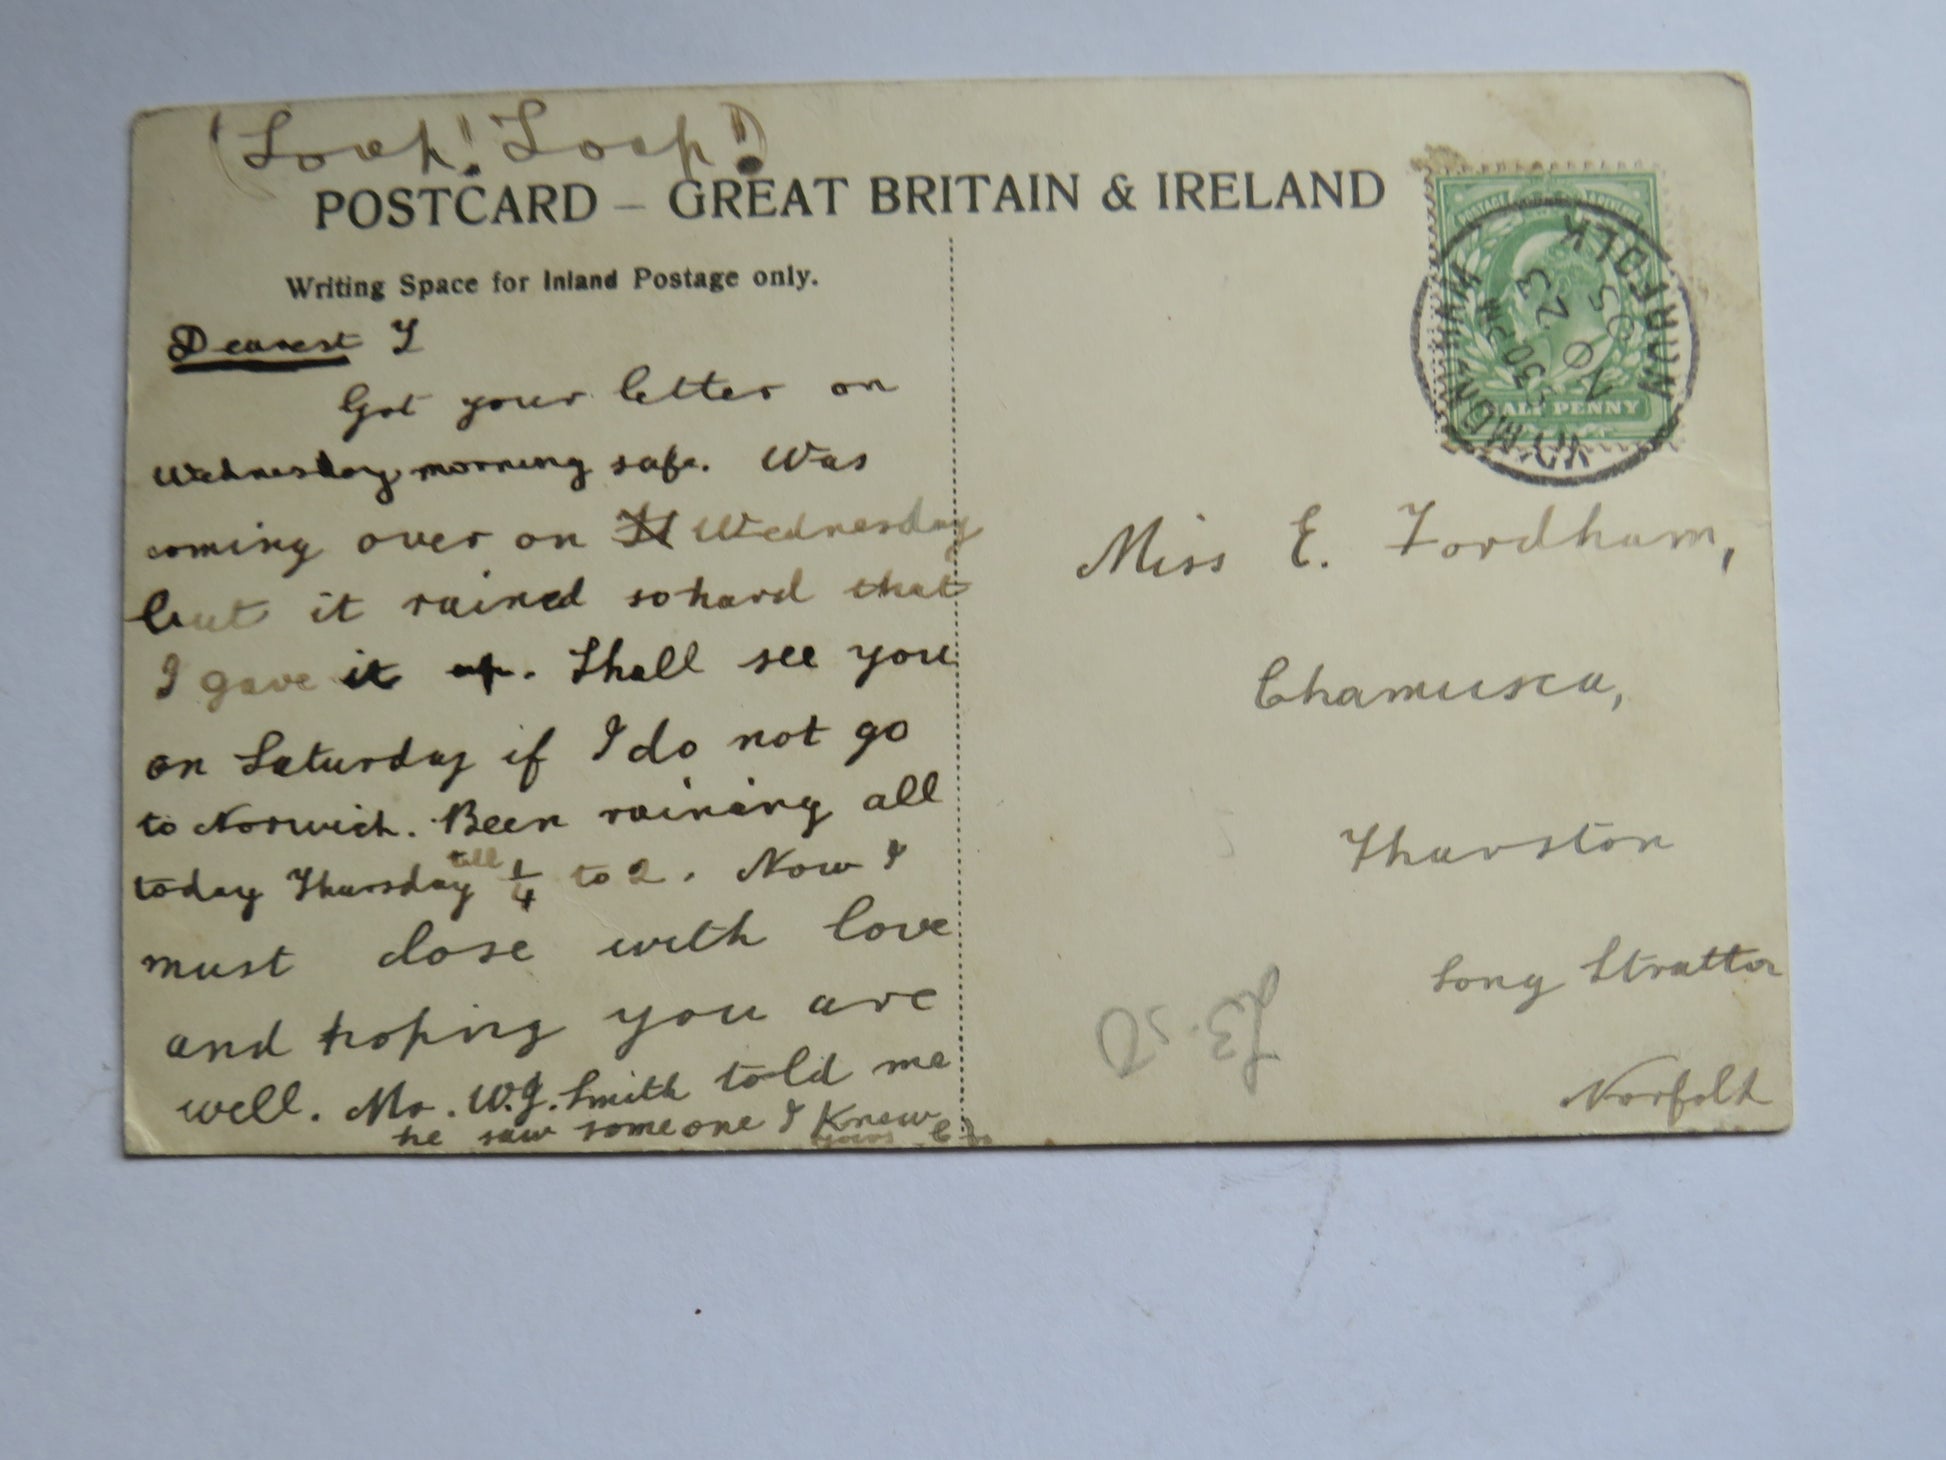 (Look! Look!)
POSTCARD – GREAT BRITAIN & IRELAND
Writing Space for Inland Postage only.
Dearest
Got your letter on
Wednesday morning safe. Was
coming over on Wednesday
but it rained so hard that
I gave it up. Shall see you
on Saturday if I do not go
to Norwich. Been raining all
today Thursday till 1/4 to 2. Now I
must close with love
and hoping you are
well. Mr. W.J. Smith told me
he saw someone I knew
yours
HALF PENNY
WYMONDHAM
NORFOLK
5 30 PM
NO 23
05
Miss E. Fordham,
Chamusca,
Tharston
Long Stratton
Norfolk
£3.50